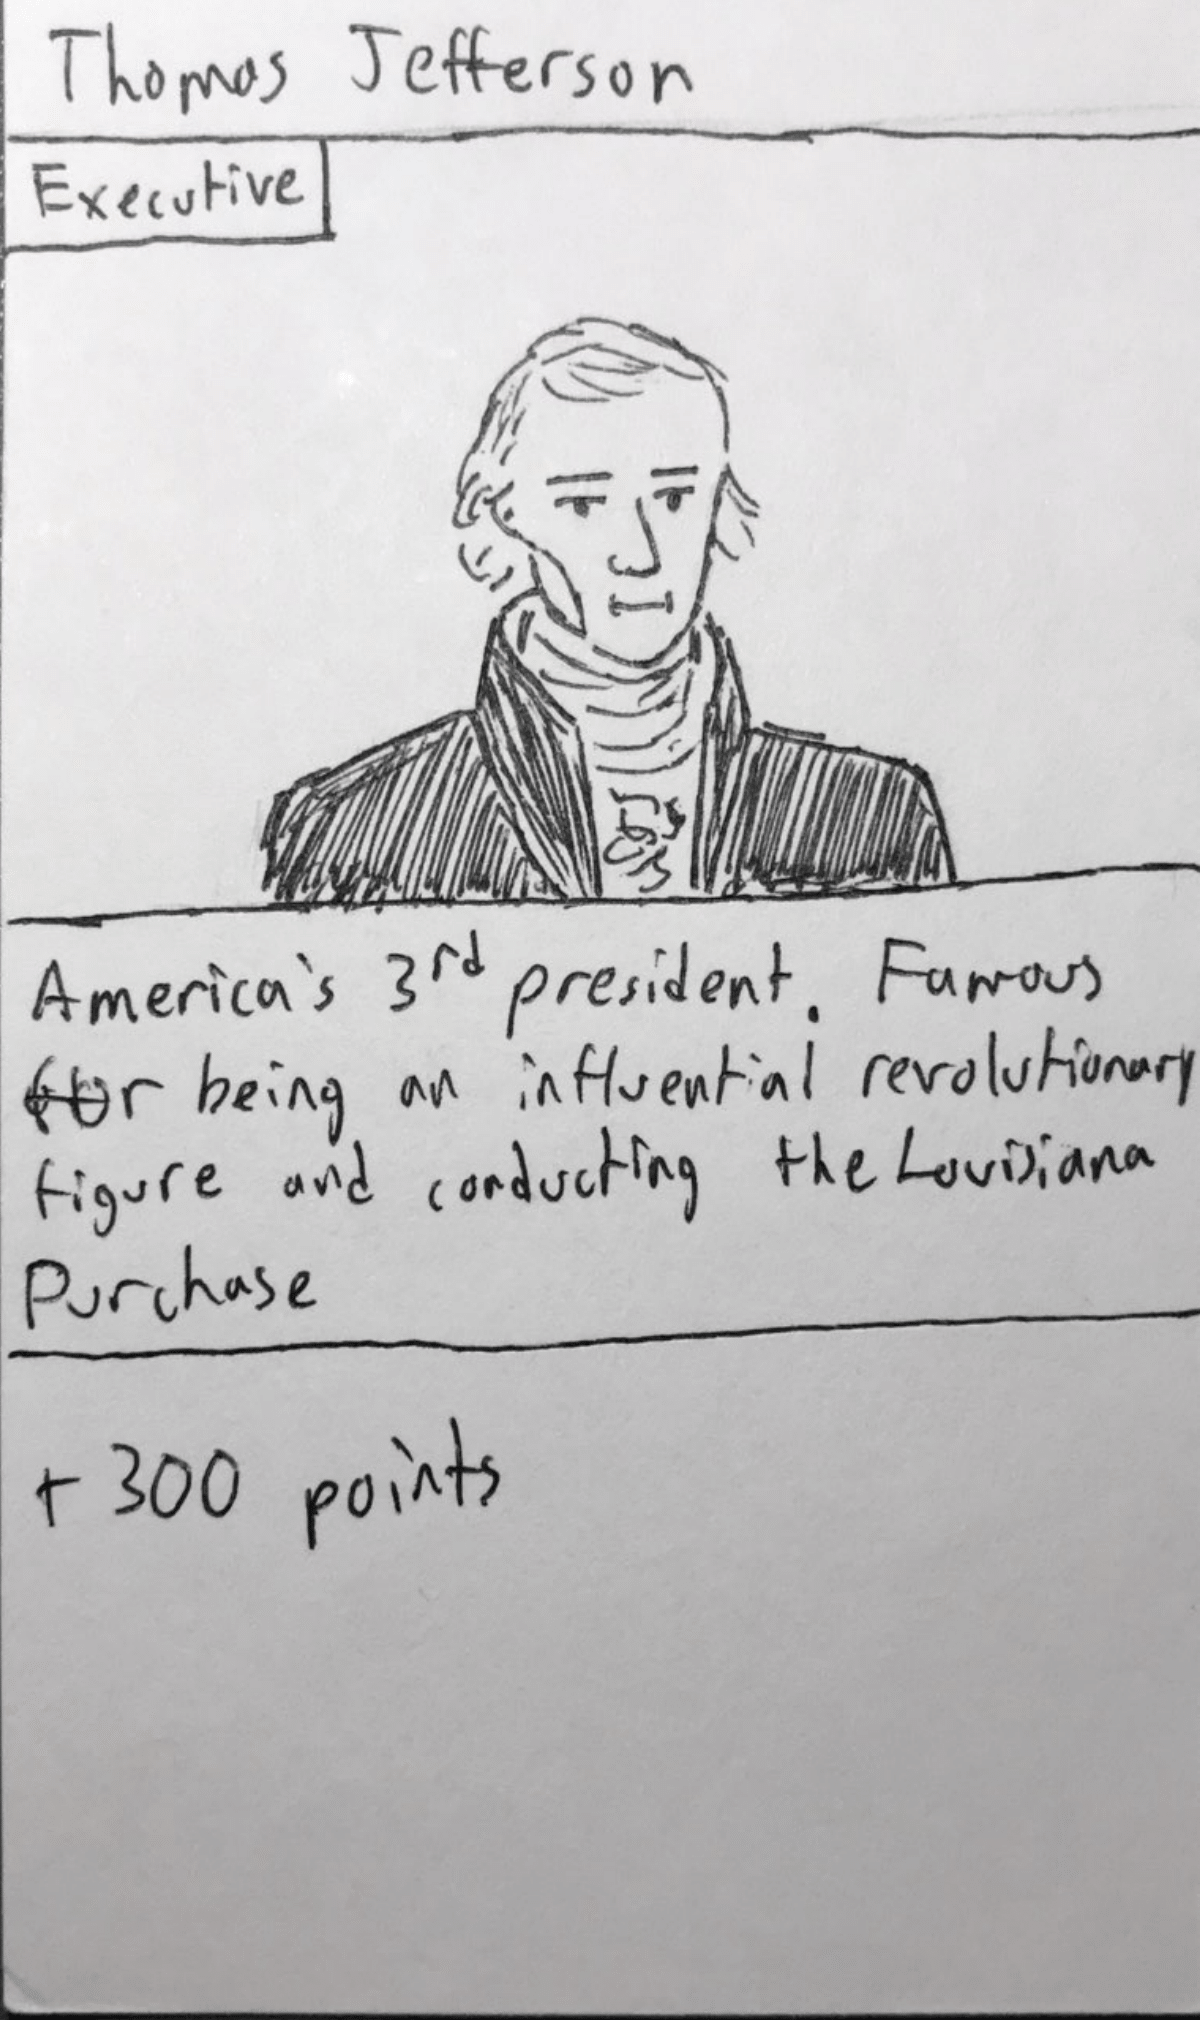 Thomas Jefferson
Executive
America's 3rd president. Famous
for being an influential revolutionary
figure and conducting the Louisiana
Purchase
+ 300 points